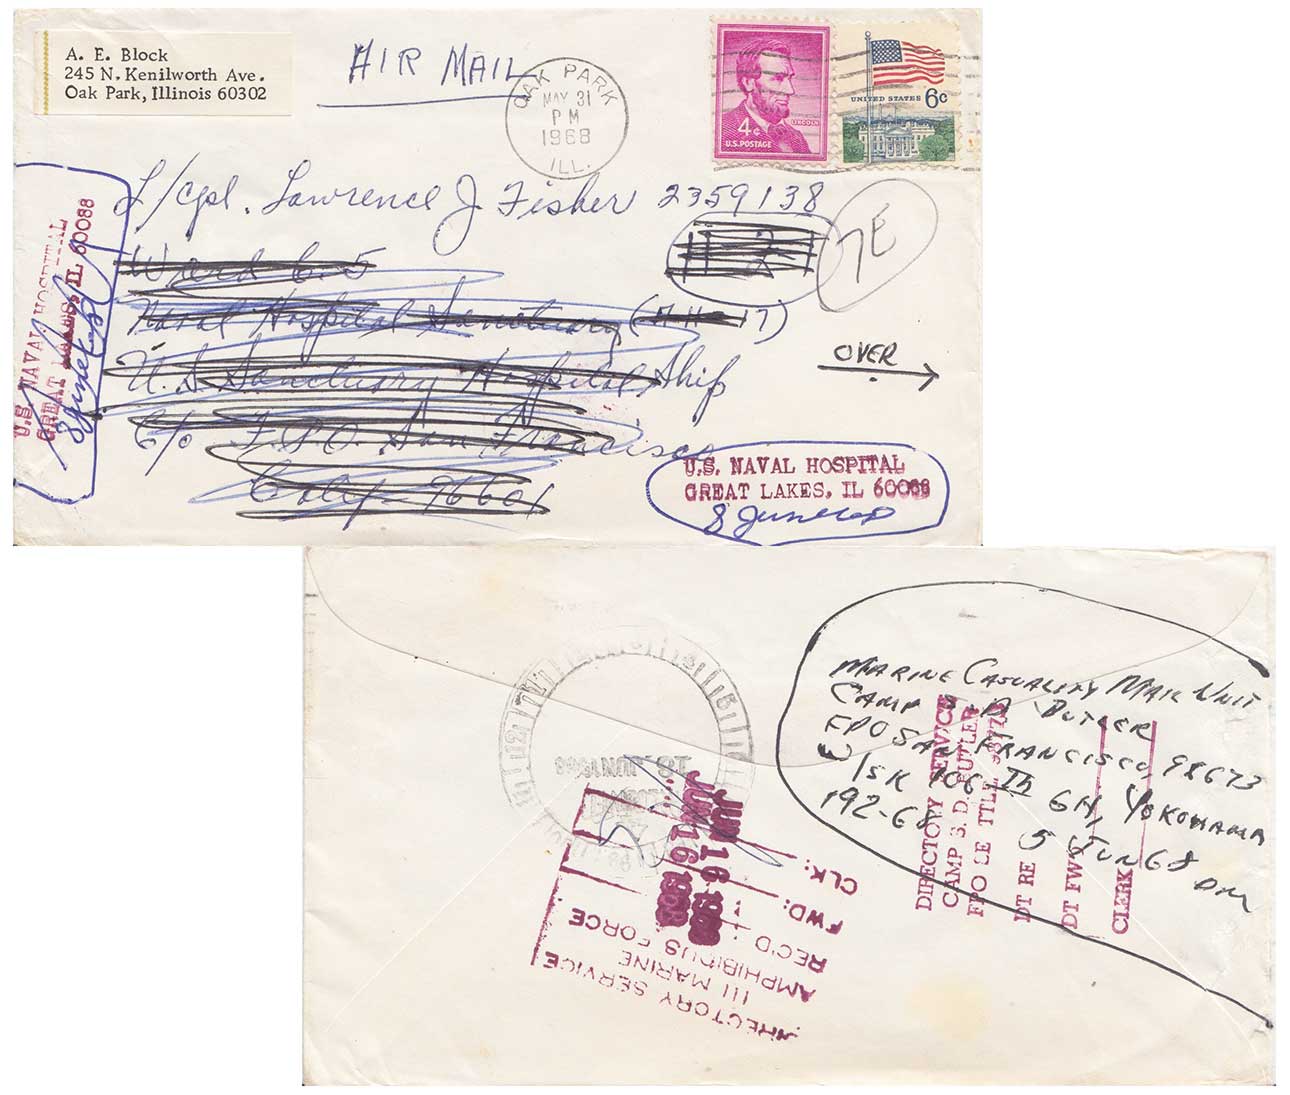 A. E. Block
245 N. Kenilworth Ave.
Oak Park, Illinois 60302
AIR MAIL
OAK PARK
MAY 31
PM
1968
ILL.
4¢
LINCOLN
U.S. POSTAGE
UNITED STATES 6¢
L/Cpl. Lawrence J Fisher 2359138
7E
Ward C-5
Naval Hospital Sanctuary (AH 17)
U.S Sanctuary Hospital Ship
C/o F.P.O. San Francisco
Calif 96601
OVER
U.S. NAVAL HOSPITAL
GREAT LAKES, IL 60088
U.S. NAVAL HOSPITAL
GREAT LAKES, IL 60088
MARINE CASUALITY MAIL UNIT
CAMP S.D. BUTLER
FPO SAN FRANCISCO, 98673
106Th GH, YOKOHAMA
192-68
5 JUN 68
DIRECTORY SERVICE
CAMP S. D. BUTLER
FPO SE TTLE
DT RE
DT FWD
CLERK
JUN 1968
DIRECTORY SERVICE
III MARINE
AMPHIBIOUS FORCE
REC'D:
FWD:
CLK:
JUN 16 1968
JUN 16 1968